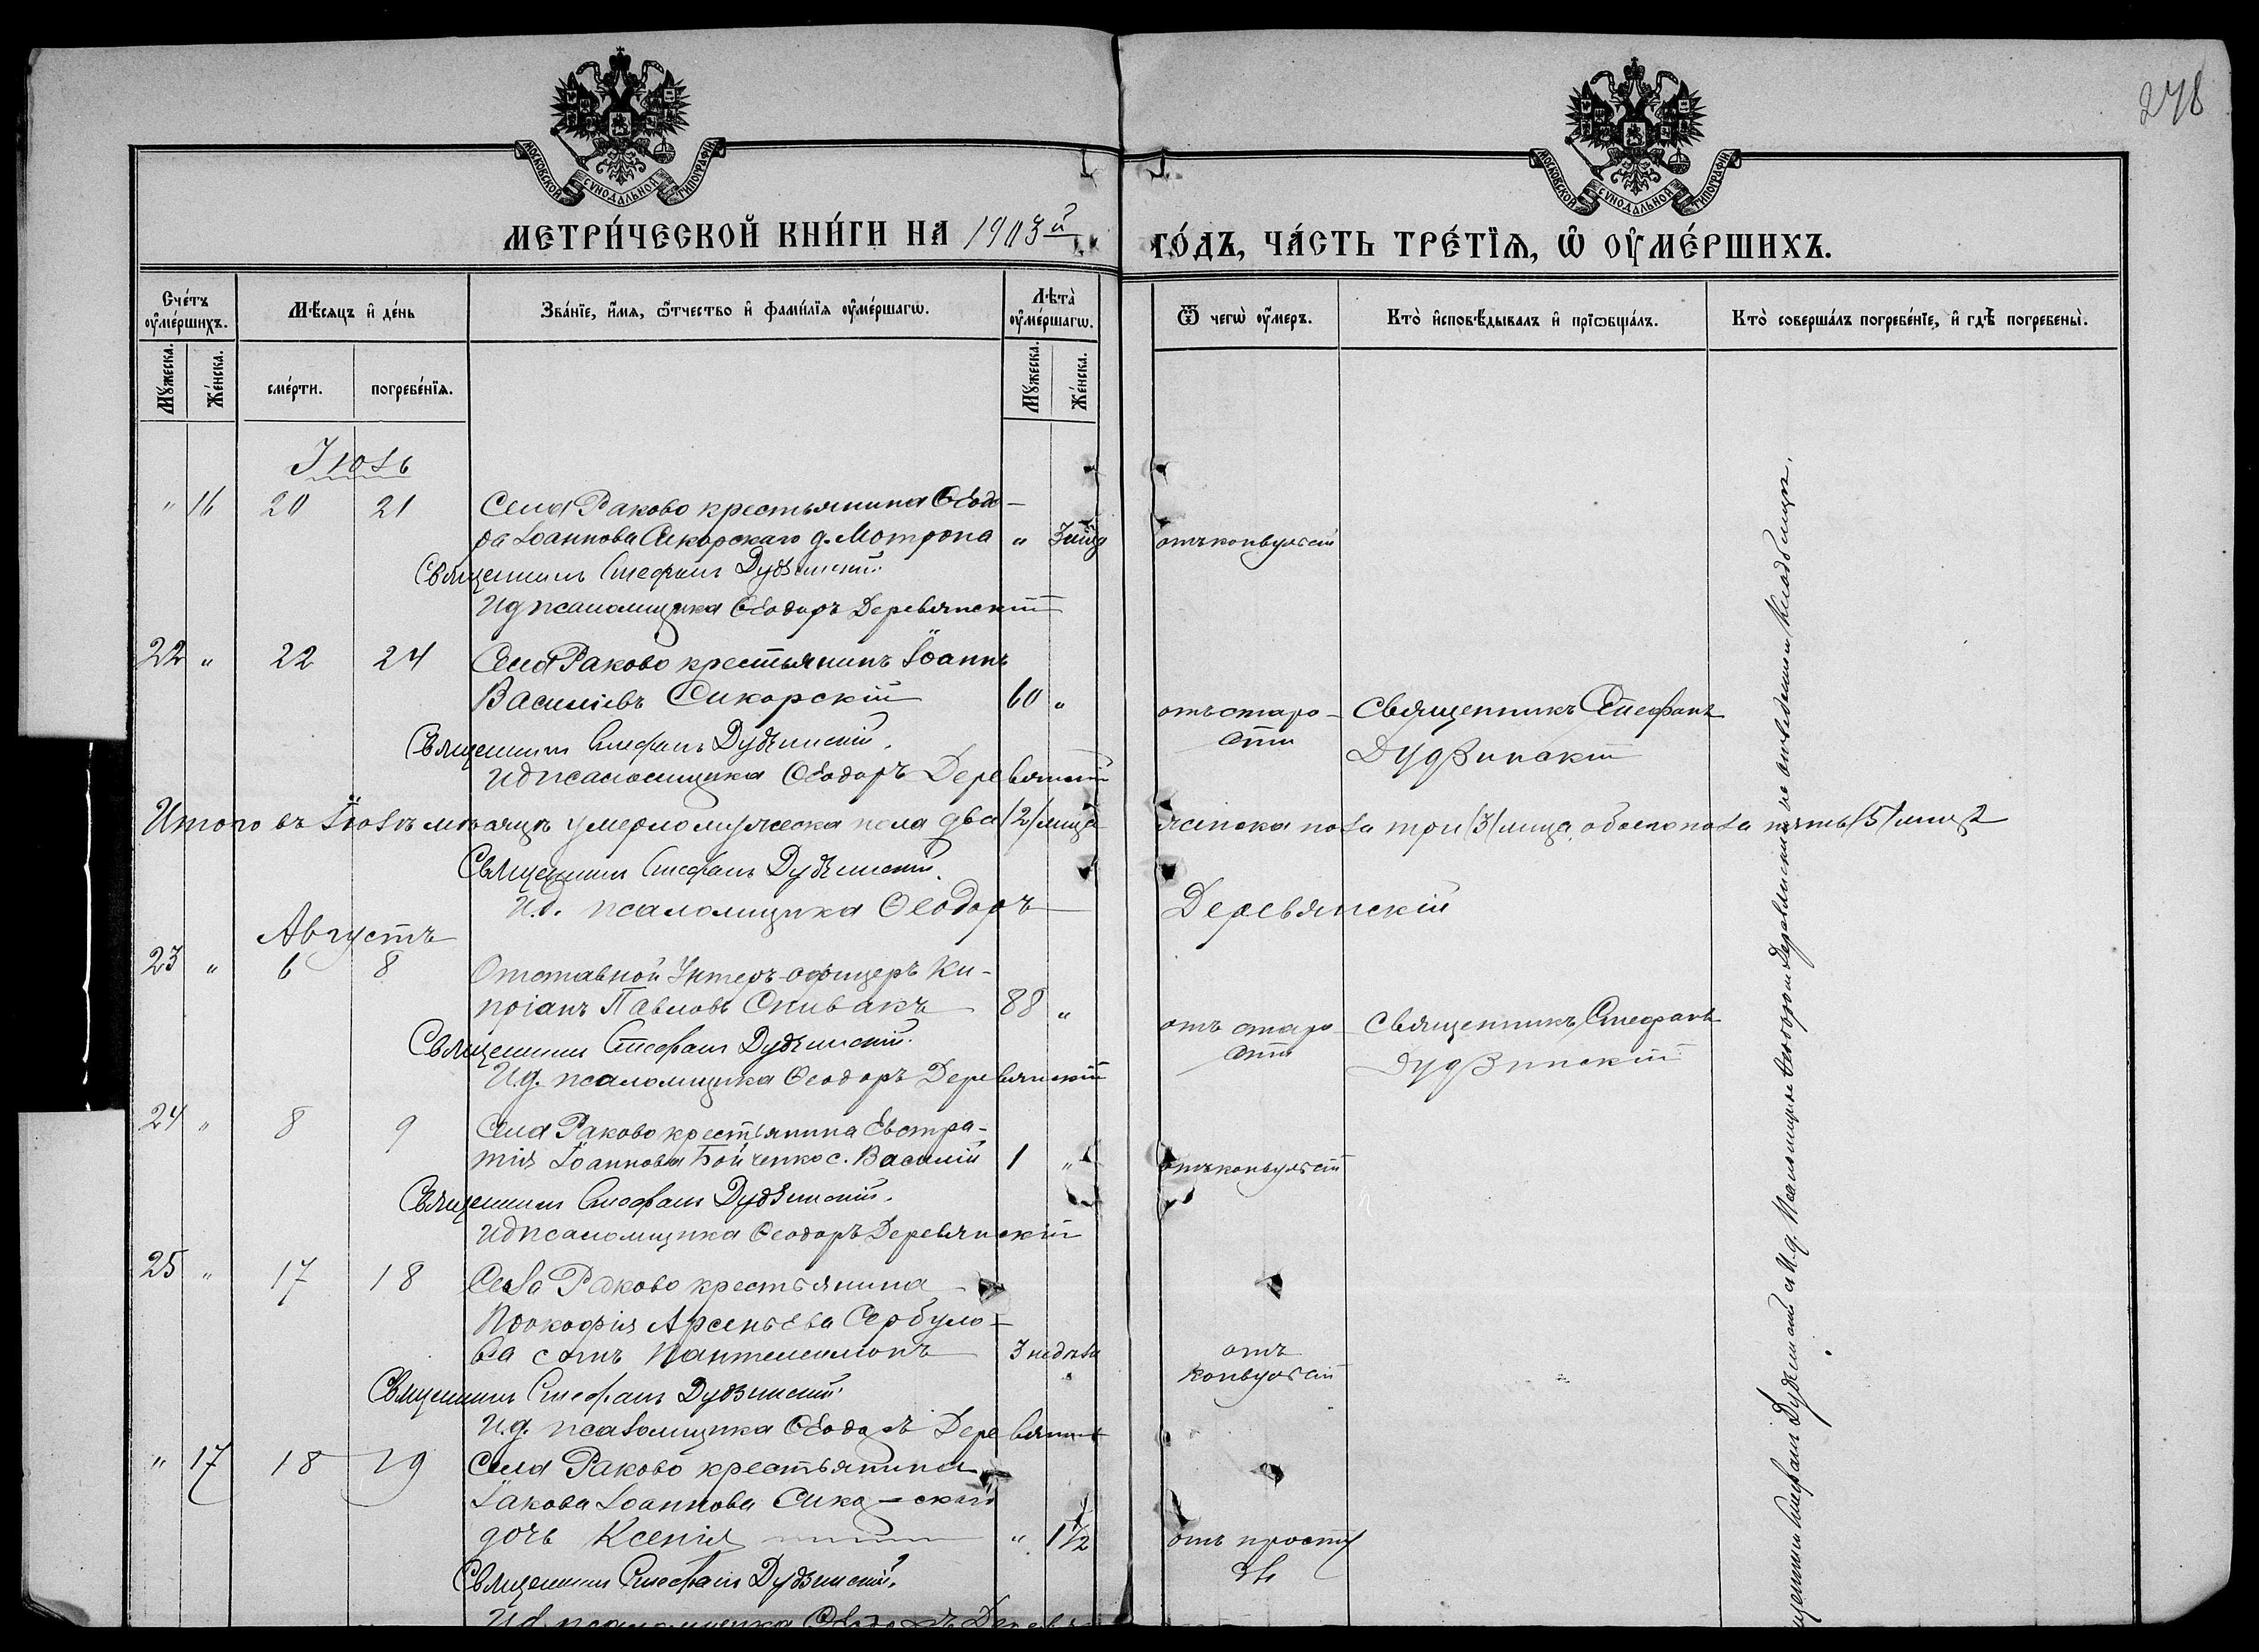 278
МОСКОВСКОЙ СѴНОДАЛЬНОЙ ТИПОГРАФІИ
МОСКОВСКОЙ СѴНОДАЛЬНОЙ ТИПОГРАФІИ
МЕТРИ́ЧЕСКОЙ КНИ́ГИ НА 1903й
ГО́ДЪ, ЧА́СТЬ ТРЕ́ТЇѦ, Ѡ҆ ОУ҆МЕ́РШИХЪ.
Сче́тъ оу҆ме́ршихъ.
Мꙋ́жеска.
Же́нска.
Мѣ́сяцъ и҆ де́нь
сме́рти.
погребе́нїѧ.
Зва́нїе, и҆́мѧ, ѻ҆́тчество и҆ фами́лїѧ оу҆ме́ршагѡ.
Лѣ́та оу҆ме́ршагѡ.
Мꙋ́жеска.
Же́нска.
Ѿ чегѡ̀ оу҆́меръ.
Кто̀ и҆сповѣ́дывалъ и҆ прїѡбща́лъ.
Кто̀ соверша́лъ погребе́нїе, и҆ гдѣ̀ погребены̀.
Іюль
" 16 20 21 Села Раково крестьянина Ѳеодо-
ра Іоаннова Сикорскаго д. Мотрона " отъ конвульсій
Священникъ Стефанъ Дудзинскій.
И д псаломщика Ѳеодоръ Деревянскій
22 " 22 24 Села Раково крестьянинъ Іоаннъ
Василіевъ Сикорскій 60 " отъ старо- Священникъ Стефанъ
сти Дудзинскій
Священникъ Стефанъ Дудзинскій.
И д псаломщика Ѳеодоръ Деревянскій
Итого въ Іюлѣ мѣсяцѣ умерло мужеска пола два /2/ лица женска пола три /3/ лица, обоего пола пять /5/ лицъ
Священникъ Стефанъ Дудзинскій.
И.д. псаломщика Ѳеодоръ Деревянскій
Августъ
23 " 6 8 Отставной Унтеръ-офицеръ Ки-
пріанъ Павловъ Спивакъ 88 " отъ старо- Священникъ Стефанъ
сти Дудзинскій
Священникъ Стефанъ Дудзинскій.
И.д. псаломщика Ѳеодоръ Деревянскій
24 " 8 9 Села Раково крестьянина Евстра-
тія Іоаннова Бойченко с. Василій 1 " отъ конвульсій
Священникъ Стефанъ Дудзинскій.
И д псаломщика Ѳеодоръ Деревянскій
25 " 17 18 Села Раково крестьянина
Прокофія Арсеньева Сербуло-
ва сынъ Пантелеимонъ 3 недѣли отъ
конвульсій
Священникъ Стефанъ Дудзинскій.
И.д. псаломщика Ѳеодоръ Деревянск
" 17 18 19 Села Раково крестьянина
Іакова Іоаннова Сикорскаго
дочь Ксенія " 1½ отъ просту
ды
Священникъ Стефанъ Дудзинскій.
И д псаломщика Ѳеодоръ Деревян
Стефанъ Дудзинскій съ И.д. Псаломщика Ѳеодоромъ Деревянскимъ на приходскомъ Кладбищѣ.